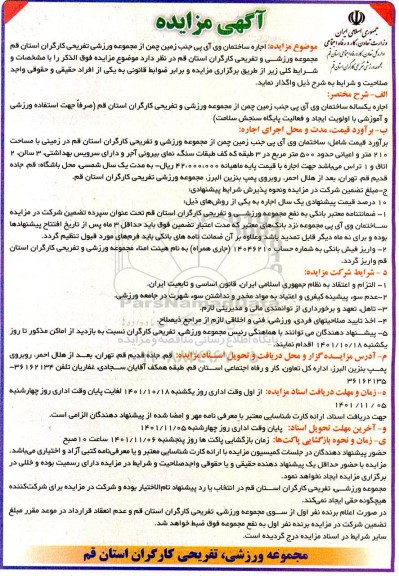 جمهوری اسلامی ایران
وزارت تعاون، کار و رفاه اجتماعی
آگهی مزایده
موضوع مزایده: اجاره ساختمان وی آی پی جنب زمین چمن از مجموعه ورزشی تفریحی کارگران استان قم
مجموعه ورزشــی و تفریحی کارگران استان قم در نظر دارد موضوع مزایده فوق الذکر را با مشخصات و
شـرایط کلی زیر از طریق برگزاری مزایده و برابر ضوابط قانونی به یکی از افراد حقیقی و حقوقی واجد
صلاحیت و شرایط به شرح ذیل واگذار نماید.
الف- شرح مختصر:
اجاره یکساله ساختمان وی آی پی جنب زمین چمن از مجموعه ورزشی و تفریحی کارگران استان قم (صرفاً جهت استفاده ورزشی
و آموزشی با اولویت ایجاد و فعالیت پایگاه سنجش سلامت)
ب- برآورد قیمت، مدت و محل اجرای اجاره:
برآورد قیمت شامل: ساختمان وی آی پی جنب زمین چمن از مجموعه ورزشی و تفریحی کارگران استان قم در زمینی با مساحت
۲۱۰ متر و اعیانی حدود ۵۰۰ متر مربع در ۲ طبقه که کف طبقات سنگ، نمای بیرونی آجر و دارای سرویس بهداشتی، ۳ سالن، ۲
اتاق و ۱ تراس می‌باشد جهت اجاره با قیمت پایه ماهیانه ۴۲،۰۰۰،۰۰۰ ریال- به مدت یک سال شمسی، محل باشگاه: قم، جاده
قدیم قم، تهران، بعد از هلال احمر، روبروی پمپ بنزین البرز، مجموعه ورزشی تفریحی کارگران استان قم.
ج-مبلغ تضمین شرکت در مزایده ونحوه پذیرش شرایط پیشنهادی:
۱۰ درصد قیمت پیشنهادی یک سال اجاره به یکی از روش‌های ذیل:
۱- ضمانتنامه معتبر بانکی به نفع مجموعه ورزشی و تفریحی کارگران استان قم تحت عنوان سپرده تضمین شرکت در مزایده
ساختمان وی آی پی مجموعه نزد بانک‌های معتبر که مدت اعتبار تضمین فوق باید حداقل ۳ ماه پس از تاریخ افتتاح پیشنهادها
بوده و برای سه ماه دیگر قابل تمدید باشد وعلاوه بر آن ضمانت نامه های بانکی باید فرم‌های مورد قبول تنظیم گردد.
۲- واریز فیش بانکی به شماره حساب ۱۴۰۴۶۲۱۰ (جاری همراه) به نام هیئت امناء مجموعه ورزشی و تفریحی کارگران استان
قم واریز گردد.
د - شرایط شرکت مزایده:
۱- التزام و اعتقاد به نظام جمهوری اسلامی ایران، قانون اساسی و تابعیت ایران.
۲-عدم سوء پیشینه کیفری و اعتیاد به مواد مخدر و نداشتن سوء شهرت در جامعه ورزشی.
۳- تاهل، تعهد و برخورداری از توانمندی مالی و مدیریتی لازم.
۴- اخذ تایید صلاحیتهای فردی، ورزشی، فنی و اخلاقی لازم از مراجع ذیصلاح.
۵- پیشــنهاد دهندگان می توانند با هماهنگی رئیس مجموعه ورزشی، تفریحی کارگران نسبت به بازدید از اماکن مذکور تا روز
یکشنبه ۱۴۰۱/۱۰/۱۸ اقدام نمایند.
م- آدرس مزایــده گزار و محل دریافت و تحویل اسـناد مزایده: قم، جاده قدیم قم، تهران، بعــد از هلال احمر، روبروی
پمپ بنزین البرز، اداره کل تعاون، کار و رفاه اجتماعی استان قم، طبقه همکف آقایان سجادی، غفاریان تلفن ۳۶۱۶۲۱۳۴-
۳۶۱۶۲۱۳۵
ه- زمان و مهلت دریافت اسناد مزایده: از اول وقت اداری روز یکشنبه ۱۴۰۱/۱۰/۱۸ لغایت پایان وقت اداری روز چهارشنبه
۱۴۰۱/۱۱/۰۵
جهت دریافت اسناد، ارائه کارت شناسایی معتبر یا معرفی نامه مهر و امضا شده از پیشنهاد دهندگان الزامی است.
و- آخرین مهلت تحویل اسناد: پایان وقت اداری روز چهارشنبه ۱۴۰۱/۱۱/۰۵
ی- زمان و نحوه بازگشایی پاکت‌ها: زمان بازگشایی پاکت ها روز پنجشنبه ۱۴۰۱/۱۱/۰۶ ساعت ۱۰ صبح
حضور پیشنهاد دهندگان در جلسات کمیسیون مزایده با ارائه کارت شناسایی معتبر و یا معرفی‌نامه کتبی آزاد و اختیاری می‌باشد.
مزایده با حضور حداقل یک پیشنهاد دهنده حقیقی و یا حقوقی واجدصلاحیت و شرایط در مزایده دارای رسمیت بوده و خللی در
برگزاری مزایده ایجاد نخواهد نمود.
مجموعه ورزشــی، تفریحی کارگران اســتان قم در انتخاب یا رد پیشنهاد تام‌الاختیار بوده و شرکت در مزایده برای شرکت‌کننده
هیچگونه حقی ایجاد نمی‌کند.
در صورت اعلام برنده نفر اول از سـوی مجموعه ورزشی، تفریحی کارگران استان قم و عدم انعقاد قرارداد در موعد مقرر مبلغ
تضمین شرکت در مزایده برنده نفر اول به نفع مجموعه فوق ضبط خواهد شد.
سایر شرایط در اسناد مزایده درج گردیده است.
مجموعه ورزشی، تفریحی کارگران استان قم